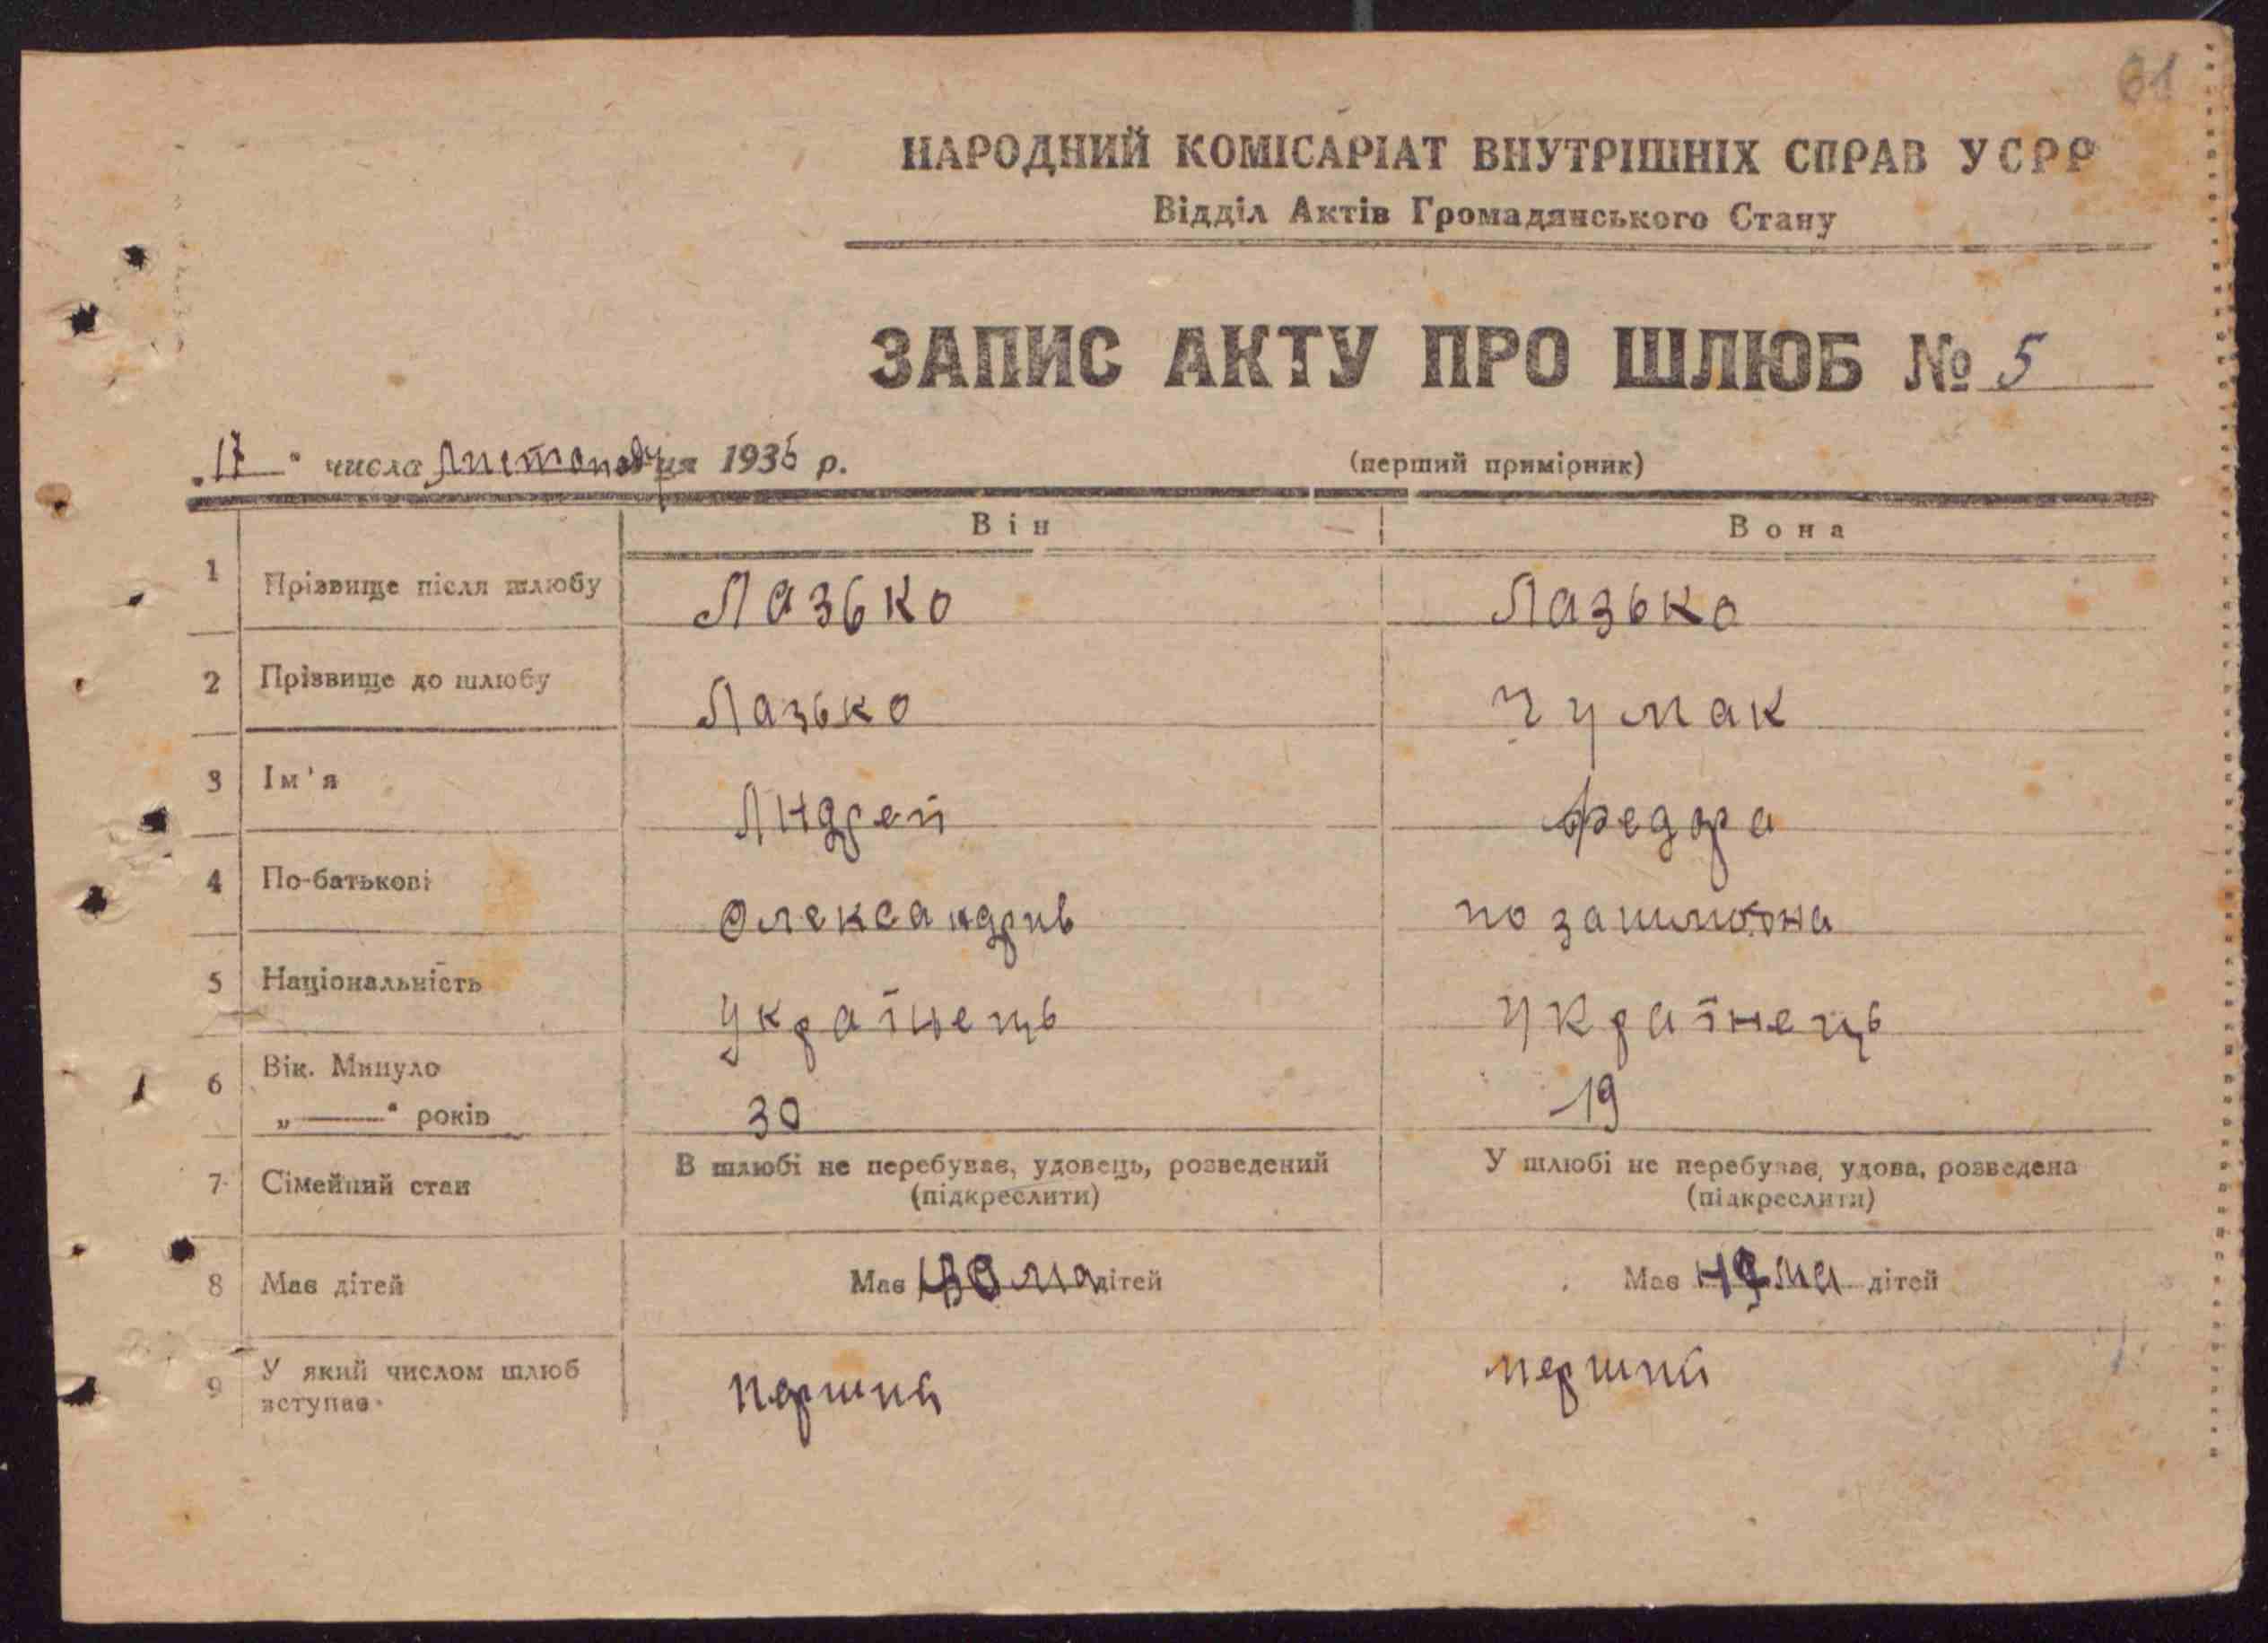 61
НАРОДНИЙ КОМІСАРІАТ ВНУТРІШНІХ СПРАВ УСРР
Відділ Актів Громадянського Стану
ЗАПИС АКТУ ПРО ШЛЮБ № 5
"17" числа листопаду ця 1936 р. (перший примірник)
Він Вона
1 Прізвище після шлюбу Лазько Лазько
2 Прізвище до шлюбу Лазько Чумак
3 Ім'я Андрей Федора
4 По-батькові Олександрив
5 Національність Українець Українець
6 Вік. Минуло
„ — " років 30 19
7 Сімейний стан В шлюбі не перебуває, удовець, розведений У шлюбі не перебуває, удова, розведена
(підкреслити) (підкреслити)
8 Має дітей Має дітей Має нема дітей
9 У який числом шлюб вступає Перший перший